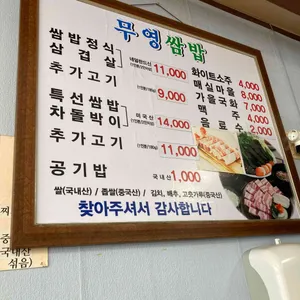 무영쌈밥
쌈밥정식
삼겹살 11,000
추가고기 9,000
특선쌈밥
차돌박이 미국산 14,000
추가고기 11,000
공기밥 국내산 1,000
화이트소주 4,000
매실마을 8,000
가을국화 7,000
맥주 4,000
음료수 2,000
쌀(국내산) / 좁쌀(중국산) / 김치, 배추, 고춧가루(중국산)
찾아주셔서 감사합니다
찌
중
국내산
섞음)